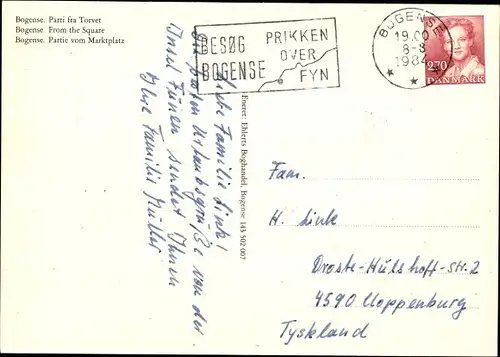 Bogense. Parti fra Torvet
Bogense. From the Square
Bogense. Partie vom Marktplatz
BESØG
BOGENSE
PRIKKEN
OVER
FYN
BOGENSE
19.00
8-8
1984
270
DANMARK
Liebe Familie Link!
Die besten Urlaubsgrüße von der
Insel Fünen sendet Ihnen
Ihre Familie Müller
Eneret: Ehlerts Boghandel, Bogense 145 502 007
Fam.
H. Link
Droste-Hülshoff-Str. 2
4590 Cloppenburg
Tyskland